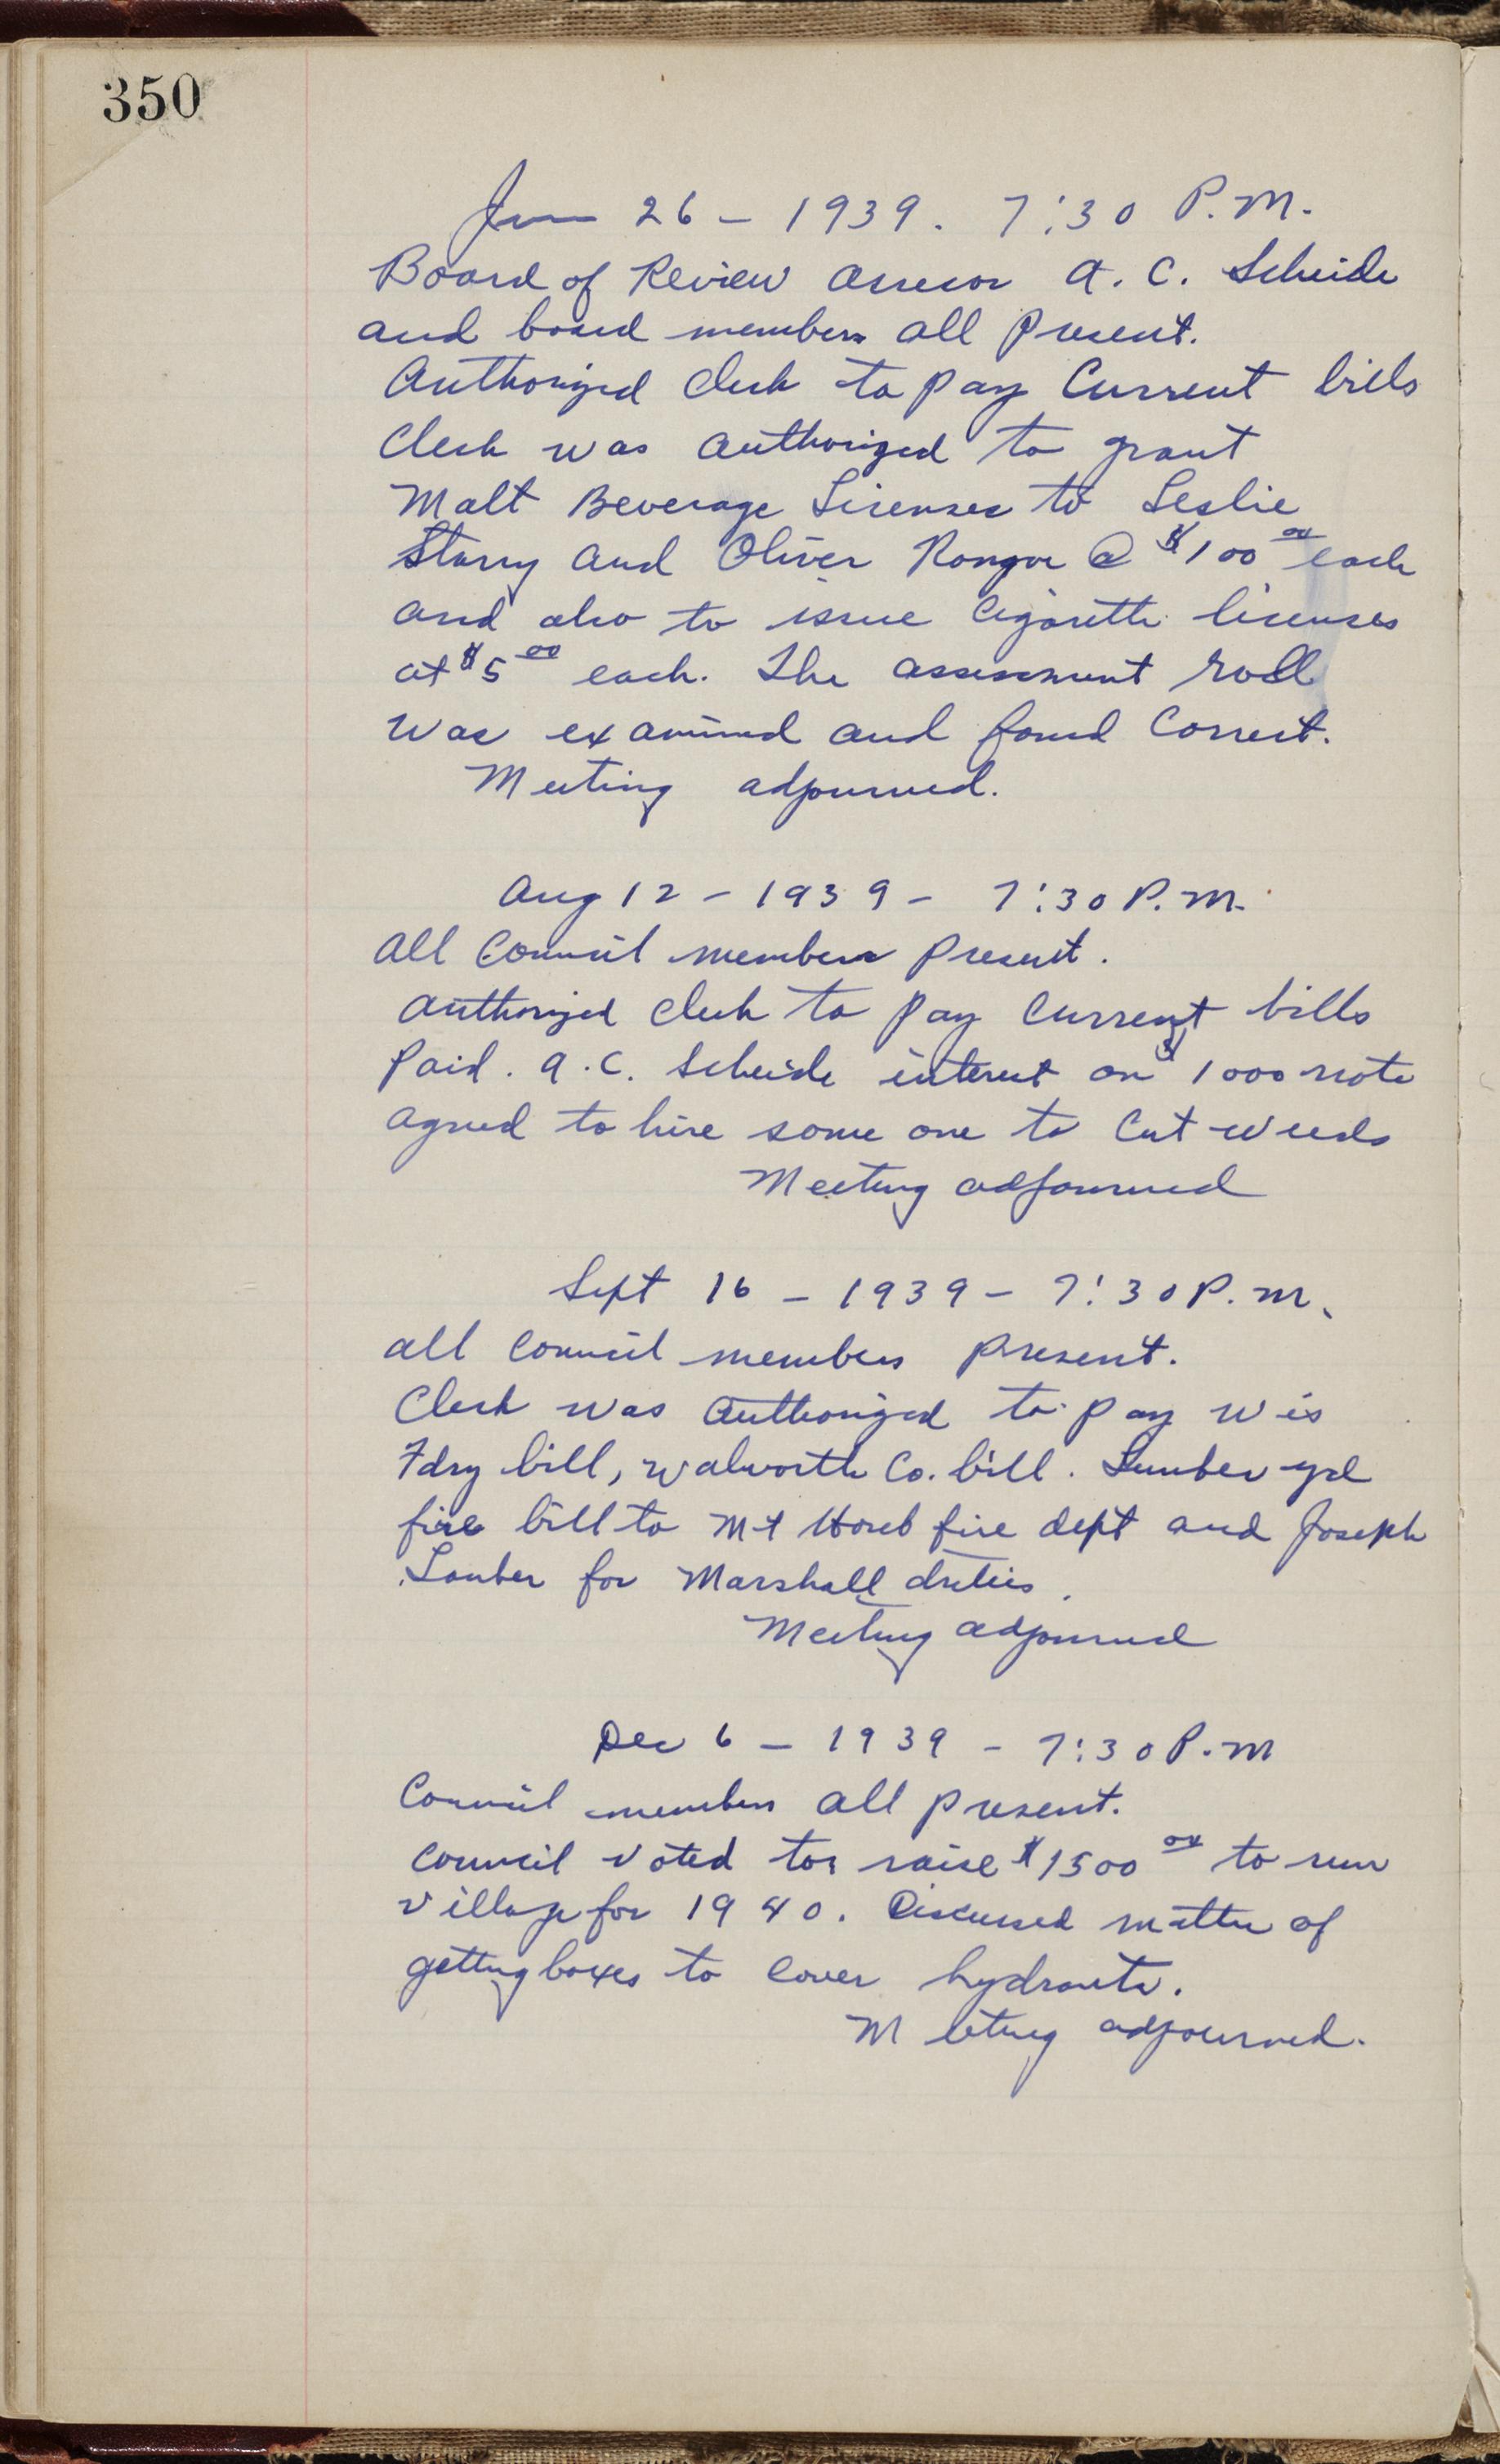 350
June 26 - 1939. 7:30 P.M.
Board of Review assesor A. C. Scheide
and board members all present.
Authorized clerk to pay Current bills
Clerk was authorized to grant
Malt Beverage Lisenses to Leslie
Starry and Oliver @ $100 00 each
and also to issue Cigarette licenses
at $5 00 each. The assessment roll
was examined and found Correct.
Meeting adjourned.
Aug 12 - 1939 - 7:30 P.M.
All Council members present.
Authorized clerk to pay Current bills
Paid. A.C. Scheide interest on $1000 note
agreed to hire some one to Cut weeds
Meeting adjourned
Sept 16 - 1939 - 7:30 P.M.
all Council members present.
Clerk was authorized to pay Wis
Fdry bill, Walworth Co. bill. Lumber yd
fire bill to Mt Horeb fire dept and Joseph
Lauber for Marshall duties.
Meeting adjourned
Dec 6 - 1939 - 7:30 P.M
Council members all present.
Council voted to raise $1500 00 to run
village for 1940. Discussed matter of
getting boxes to cover hydrants.
Meeting adjourned.